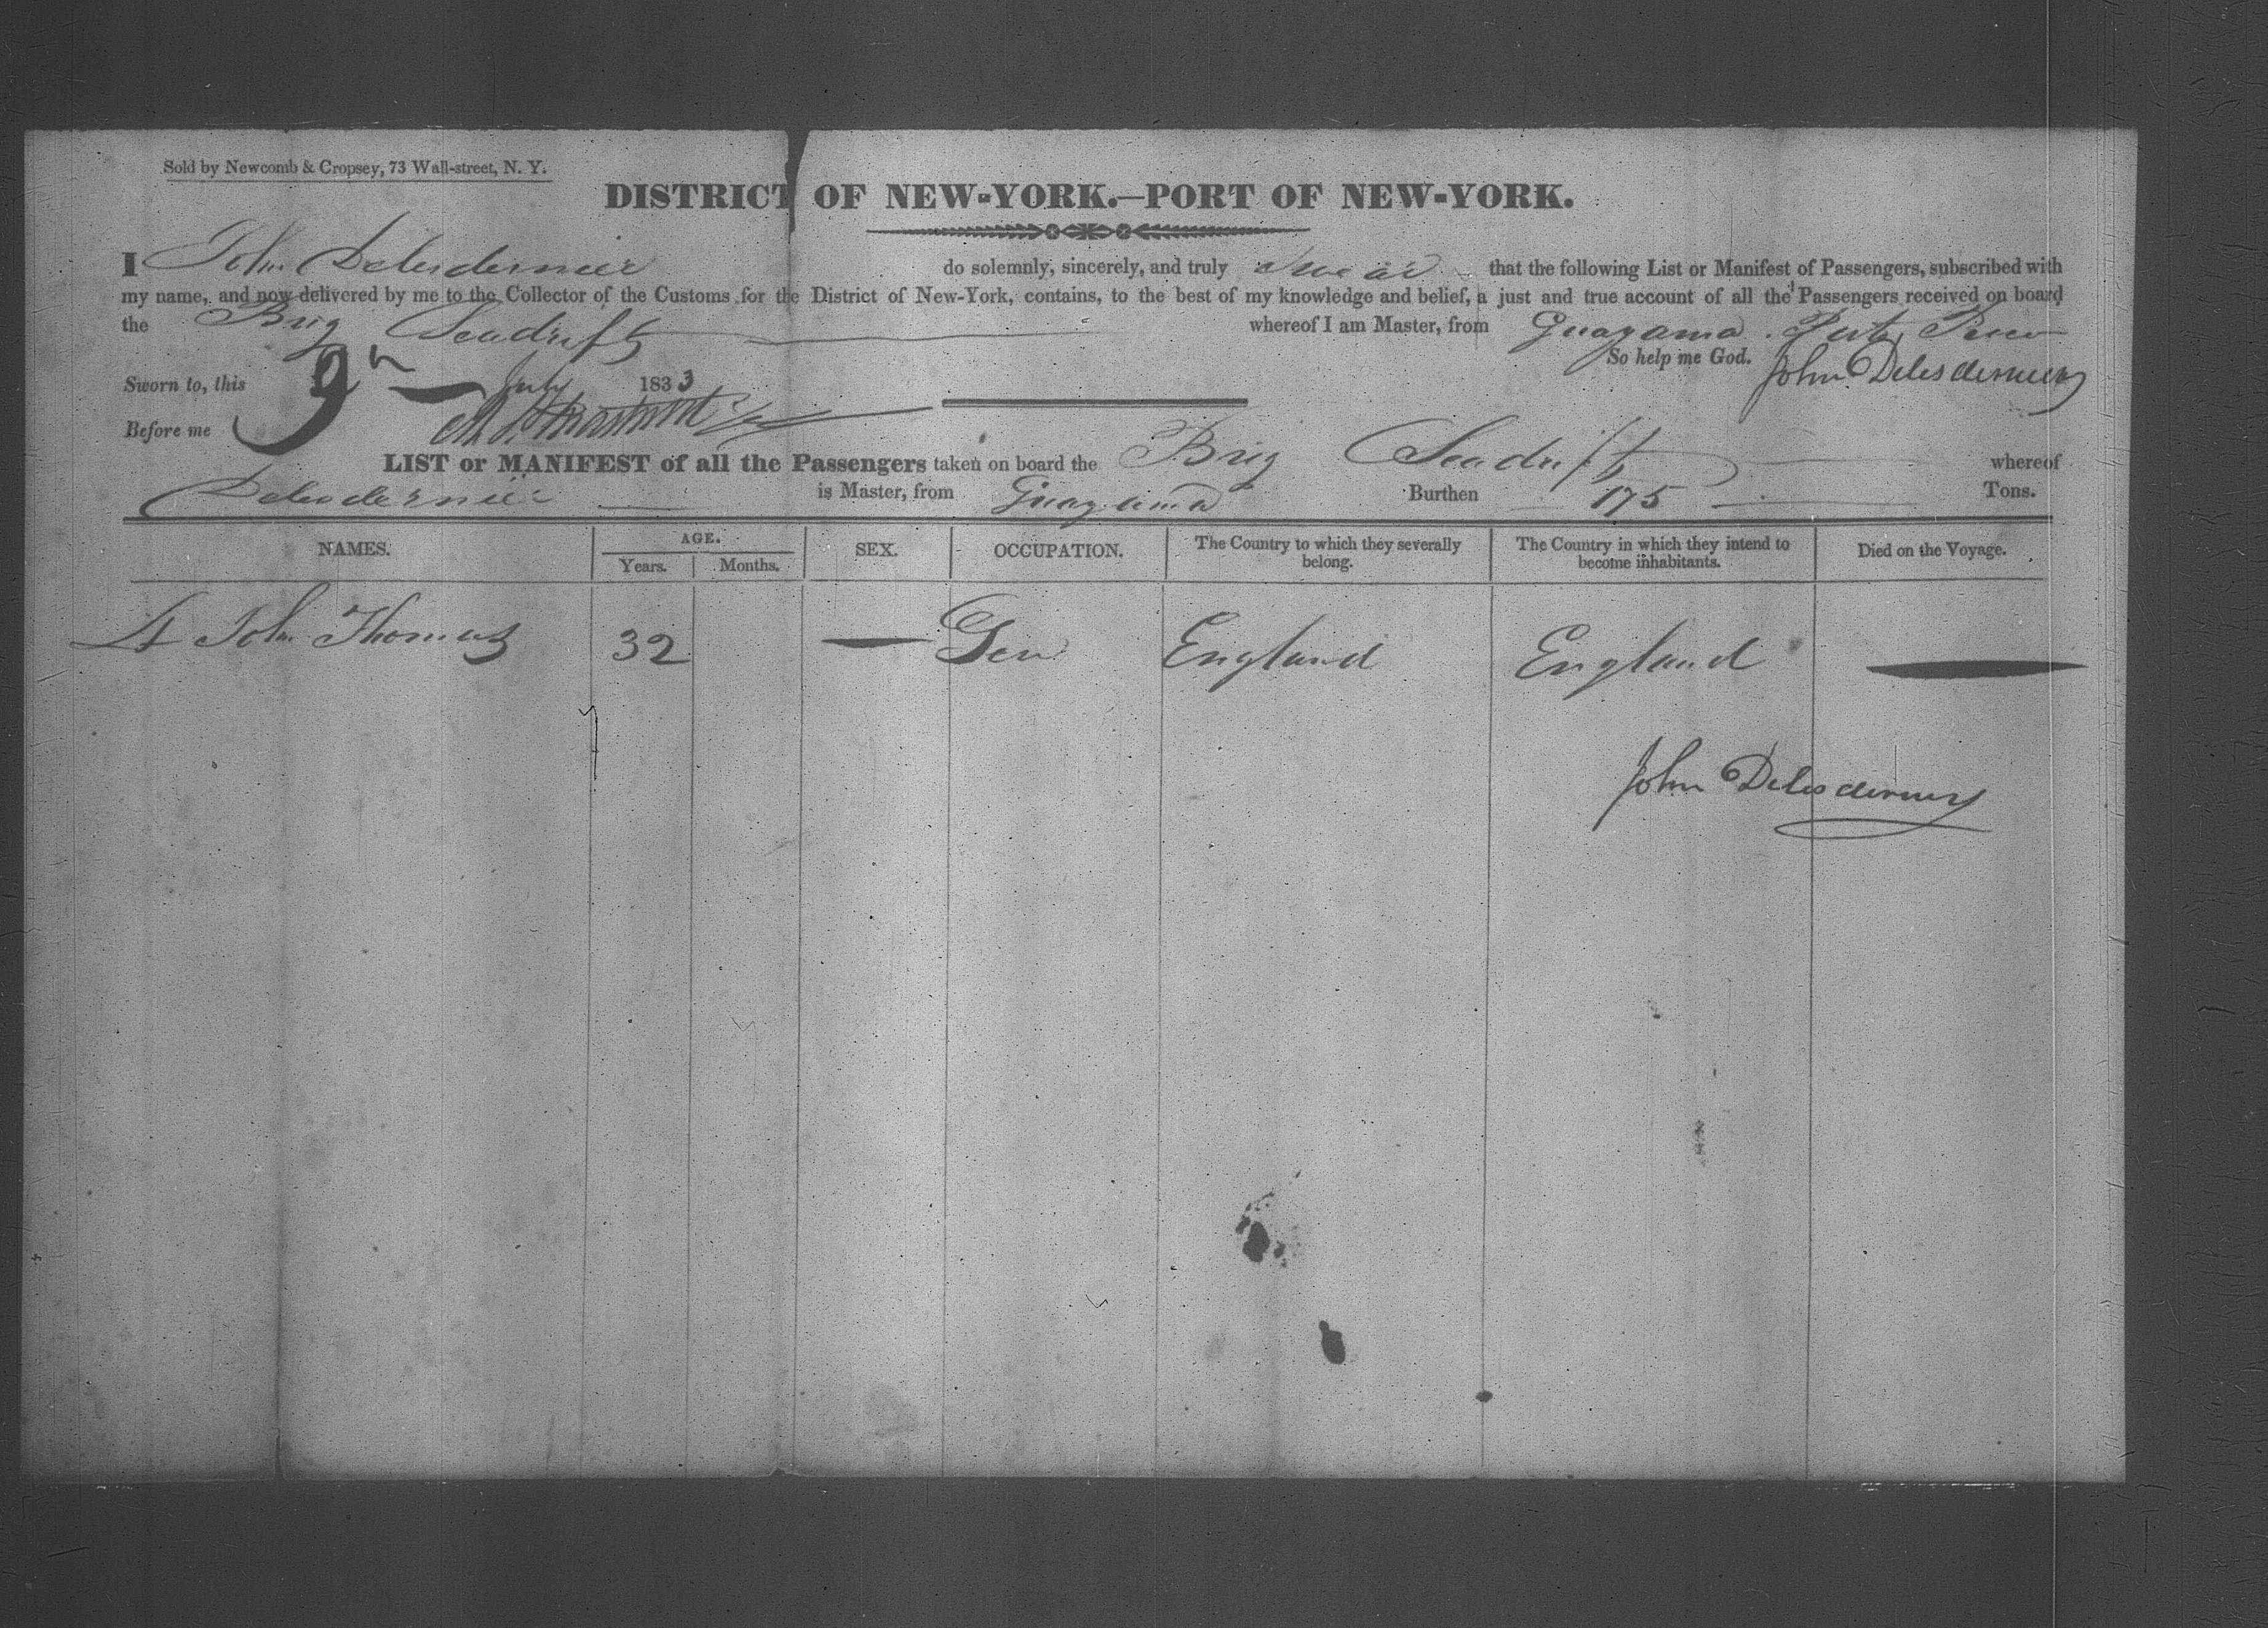 Sold by Newcomb & Cropsey, 73 Wall-street, N. Y.
DISTRICT OF NEW-YORK.—PORT OF NEW-YORK.
I John Delesdernier do solemnly, sincerely, and truly swear that the following List or Manifest of Passengers, subscribed with
my name, and now delivered by me to the Collector of the Customs for the District of New-York, contains, to the best of my knowledge and belief, a just and true account of all the Passengers received on board
the Brig Seadrift whereof I am Master, from Guayama Porto Rico
So help me God. John Delesdernier
Sworn to, this 9th July 1833
Before me
LIST or MANIFEST of all the Passengers taken on board the Brig Seadrift whereof
Delesdernier is Master, from Guayama Burthen 175 Tons.
NAMES. AGE. SEX. OCCUPATION. The Country to which they severally belong. The Country in which they intend to become inhabitants. Died on the Voyage.
Years. Months.
John Thomas 32 — Gen England England —
John Delesdernier